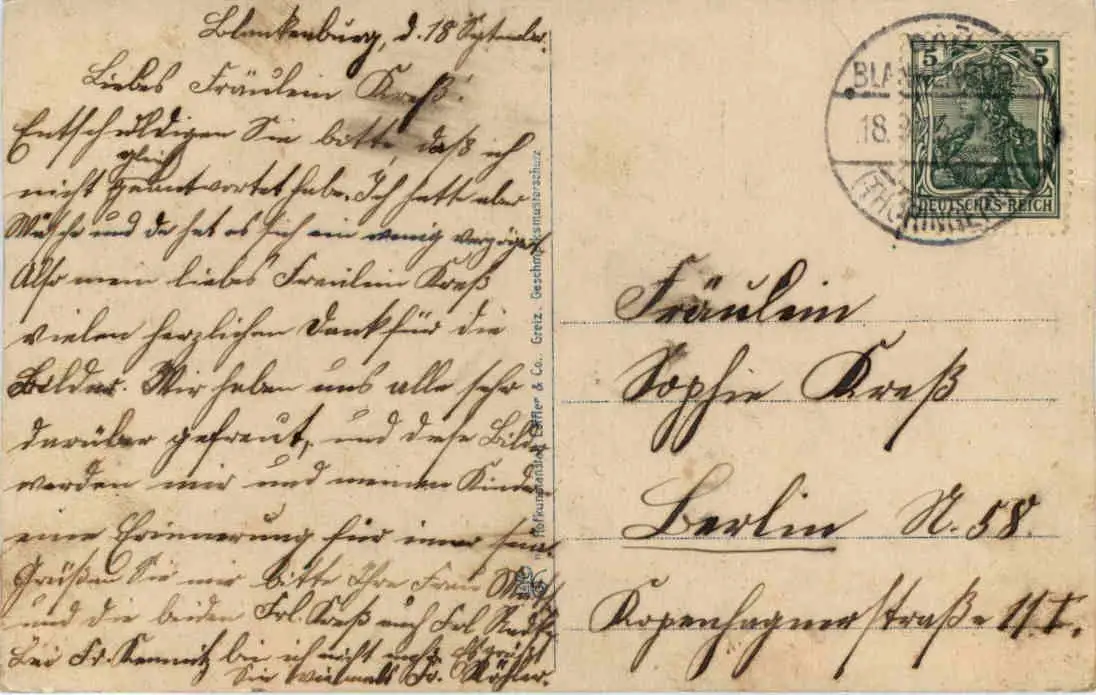 Blankenburg, d. 18 September.
Liebes Fräulein Kreß!
Entschuldigen Sie bitte, daß ich
gleich
nicht geantwortet habe. Ich hatte aber
Wäsche und da hat es sich ein wenig verzögert
Also mein liebes Fräulein Kreß
vielen herzlichen Dank für die
Bilder. Wir haben uns alle sehr
darüber gefreut, und diese Bilder
werden mir und meinen Kindern
eine Erinnerung für immer sein.
Grüßen Sie mir bitte Ihre Frau
und die beiden Frl. Kreß auch Frl
Bei Fr. bin ich nicht mehr. Es grüßt
Sie vielmals Fr. Köhler.
Hofkunstanstalt Löffler & Co., Greiz. Geschmacksmusterschutz
BAD
BLANKENBURG
18. 9.
(THÜRINGEN)
5 5
DEUTSCHES REICH
Fräulein
Sophie Kreß
Berlin N. 58.
Kopenhagnerstraße 11 I.